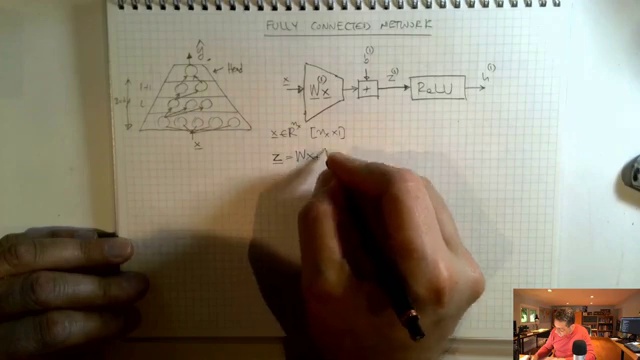 FULLY CONNECTED NETWORK
ŷ
Head
L+1
L
x
x
W(1)x
b(1)
+
z(1)
ReLU
h(1)
x ∈ R^nx [nx x 1]
z = Wx+